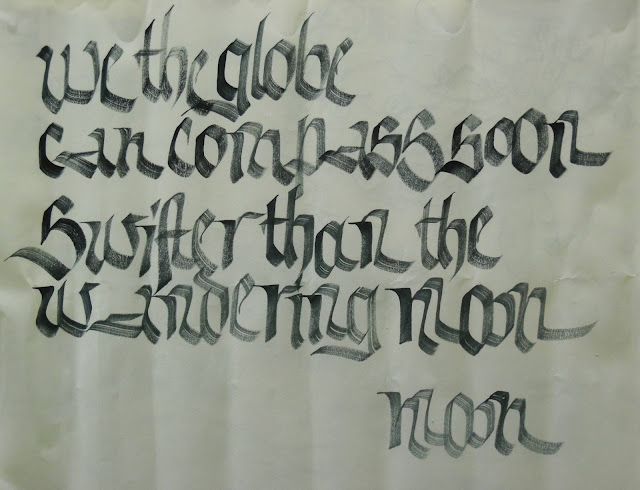 we the globe
can compass soon
Swifter than the
wandering moon
moon